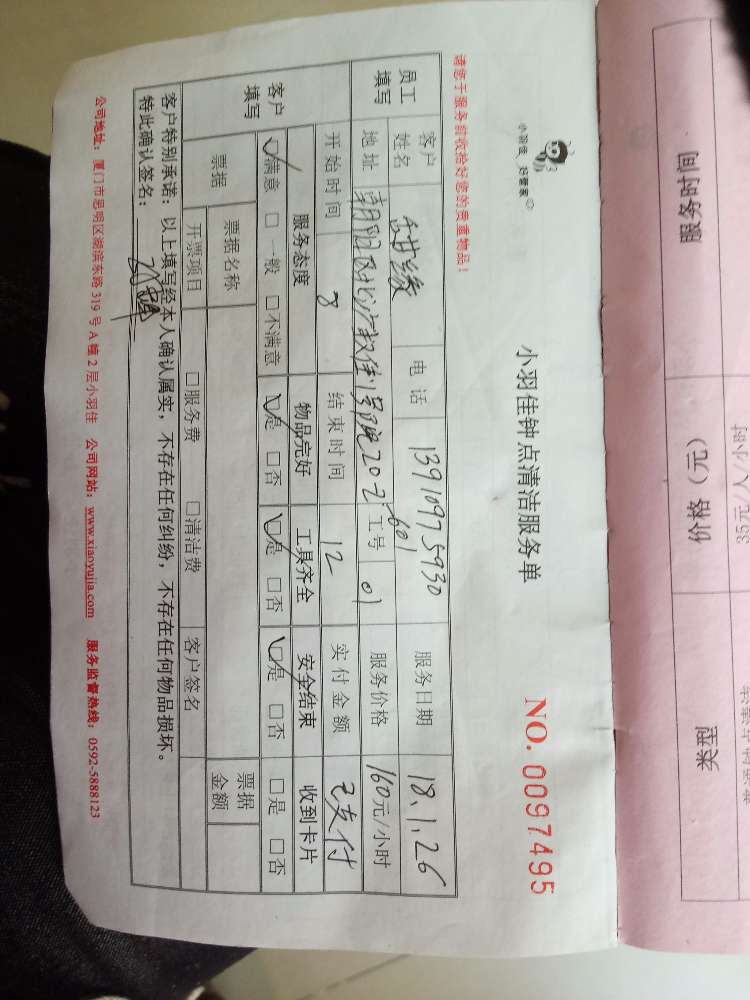 小羽佳 好管家
小羽佳钟点清洁服务单
NO. 0097495
请您于服务前收拾好您的贵重物品！
员工填写
客户姓名
电话 13910975930
服务日期 18.1.26
地址
20-2-601
工号 01
服务价格 160元/小时
开始时间 8
结束时间 12
实付金额 已支付
客户填写
服务态度 物品完好 工具齐全 安全结束 收到卡片
☑满意 □一般 □不满意 ☑是 □否 ☑是 □否 ☑是 □否 □是 □否
票据
票据名称
票据金额
开票项目 □服务费 □清洁费 客户签名
客户特别承诺：以上填写经本人确认属实，不存在任何纠纷，不存在任何物品损坏。
特此确认签名：
公司地址：厦门市思明区湖滨东路319号A幢2层小羽佳 公司网站：www.xiaoyujia.com 服务监督热线：0592-5888123
服务时间 价格（元） 类型
35元/人/小时